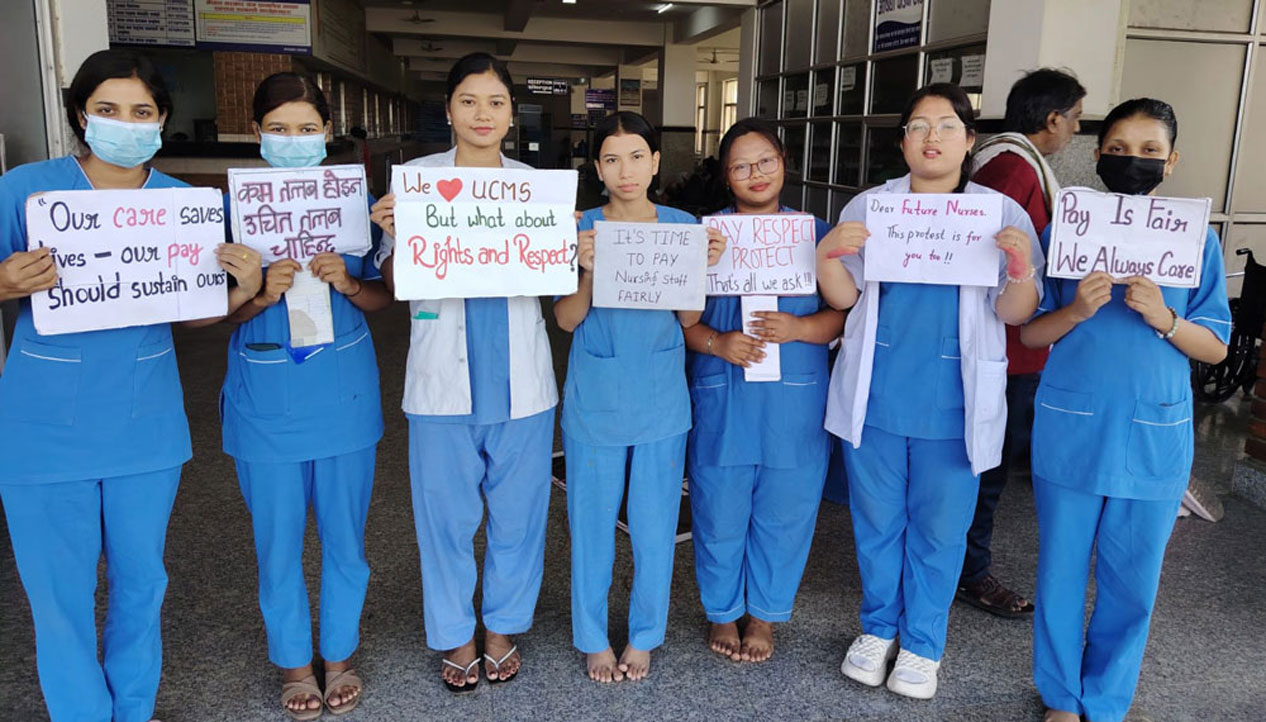 RECEPTION
"Our care saves
lives – our pay
should sustain ours
कम तलब होइन
उचित तलब
चाहिन्छ
We ❤ UCMS
But what about
Rights and Respect?
It's TIME
TO PAY
Nursing STAFF
FAIRLY
PAY RESPECT
PROTECT
That's all we ask!!
Dear Future Nurses,
This protest is for
you too !!
Pay Is Fair
We Always Care